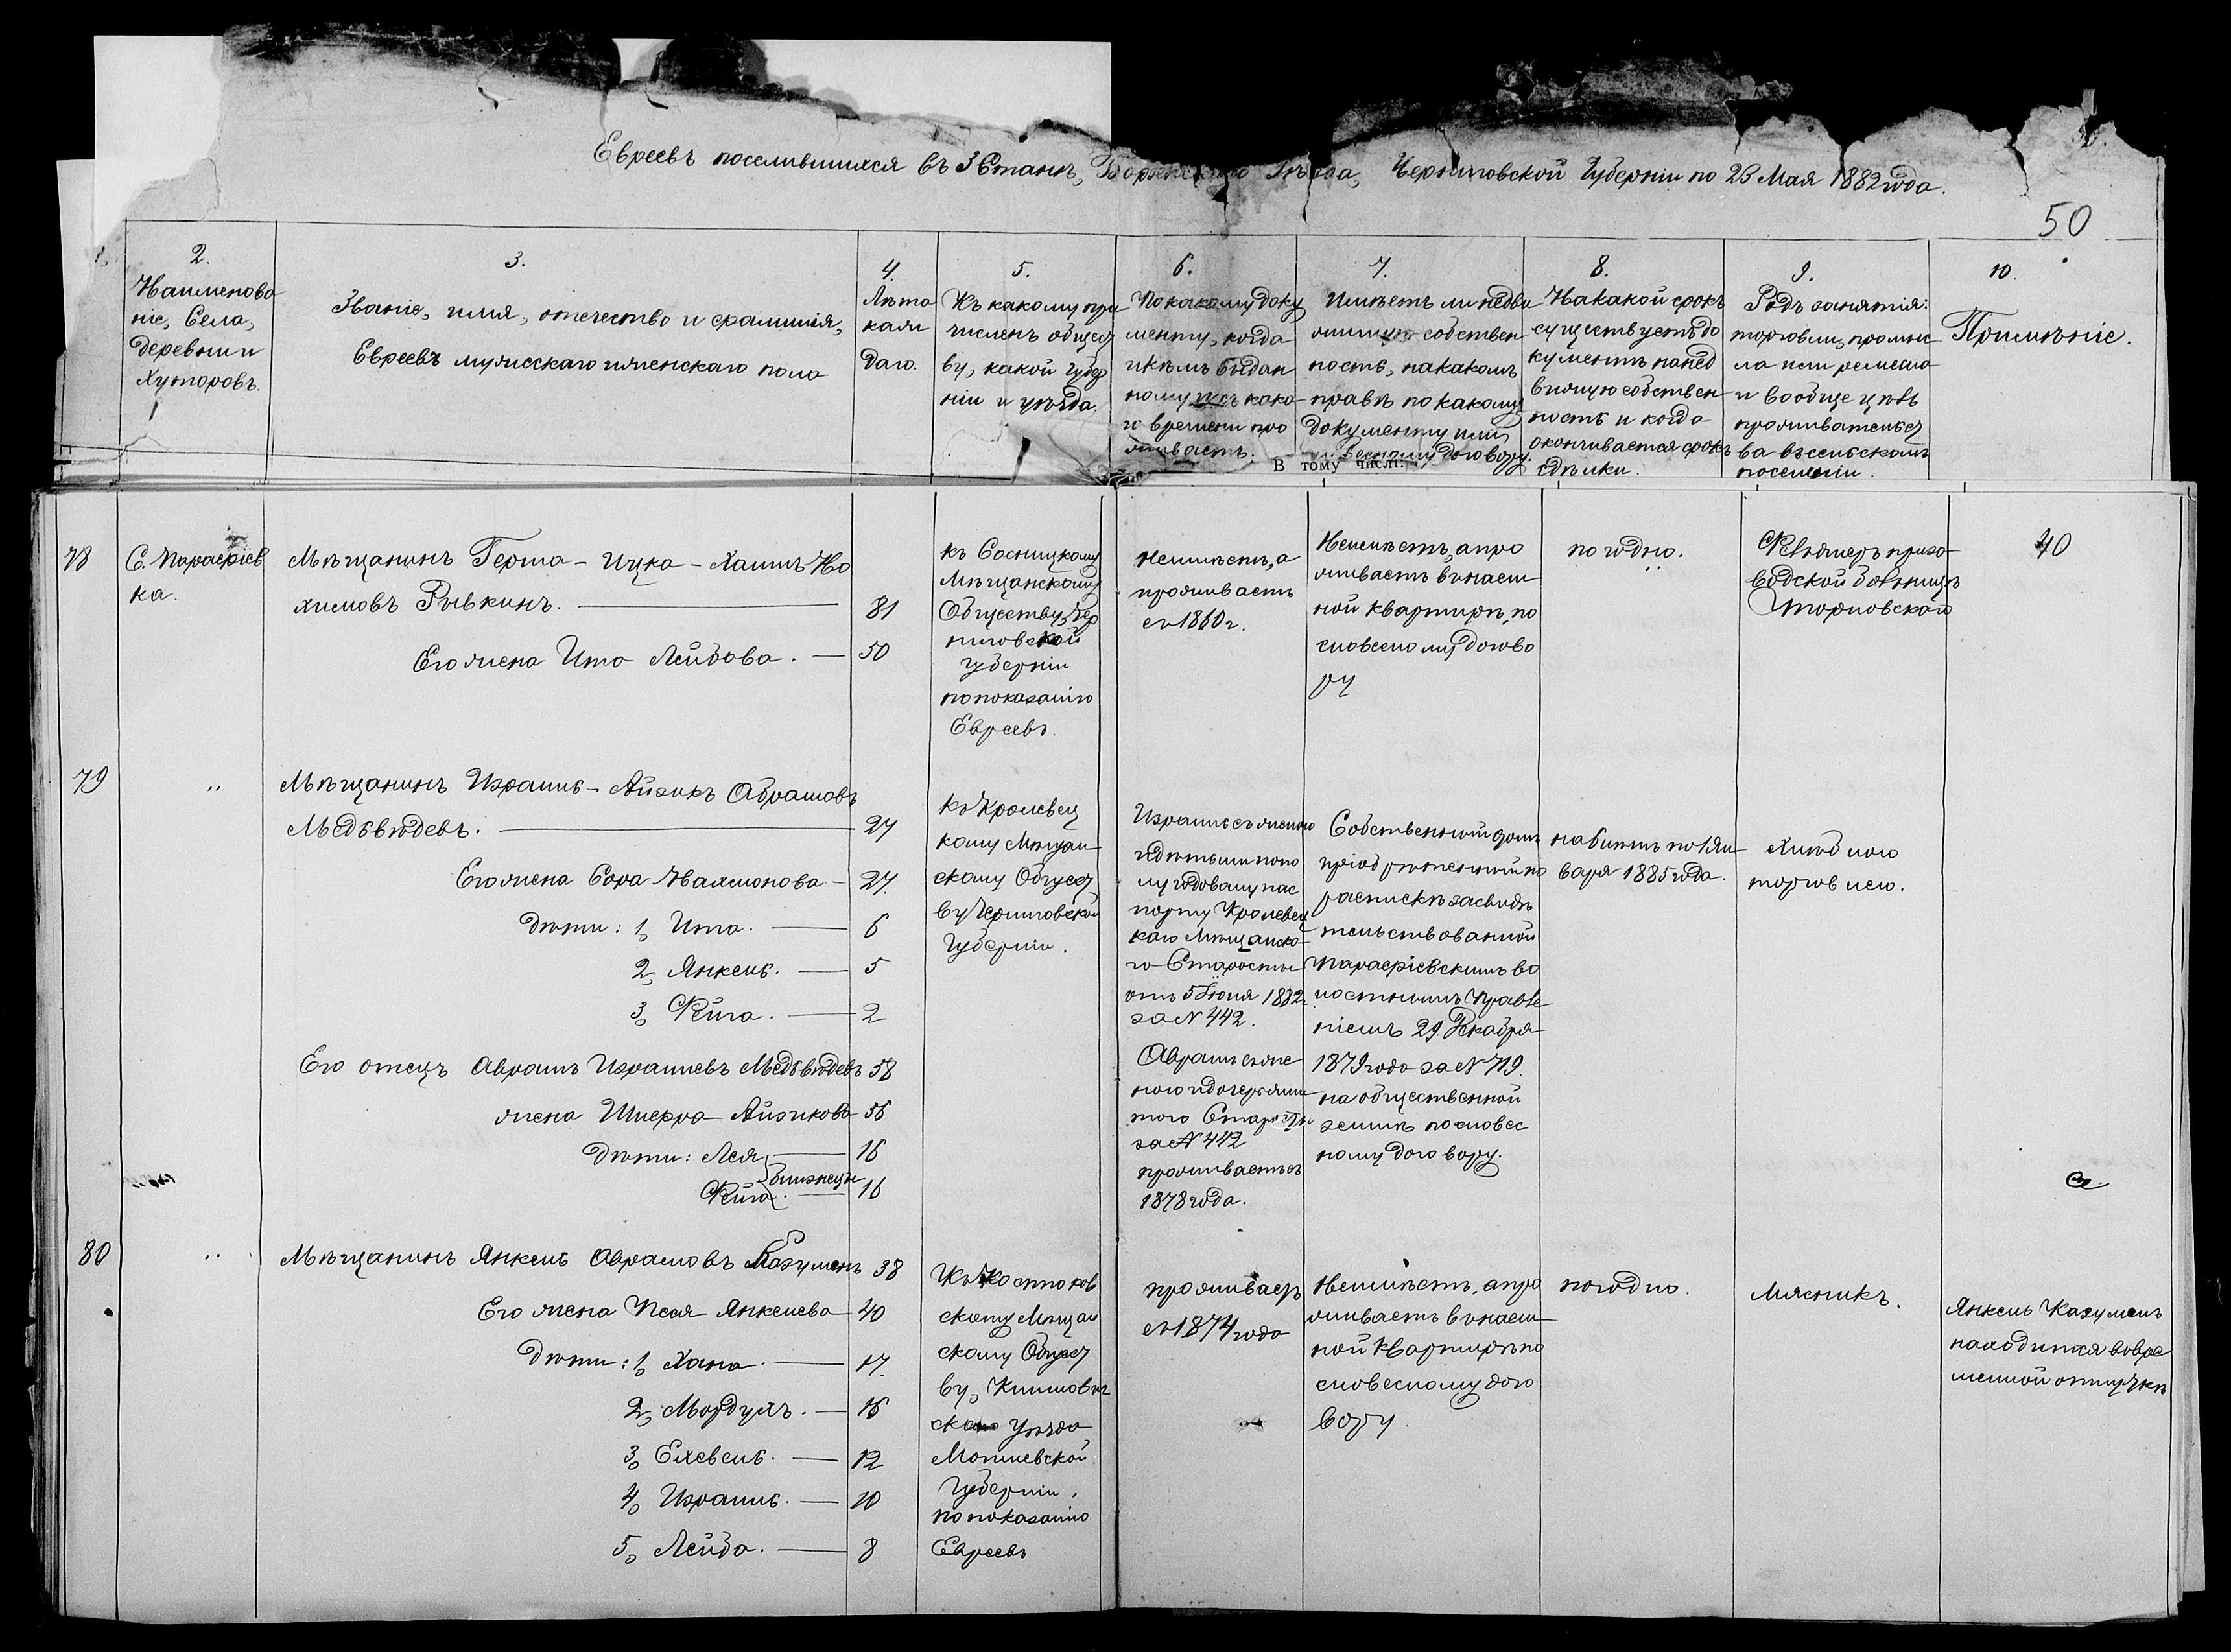 Евреевъ поселившихся въ 3 Станѣ, Борзенскаго Уѣзда, Черниговской Губерніи по 23 Мая 1882 года.
50
2.
Наименова
ніе, Села,
деревни и
Хуторовъ.
3.
Званіе, имя, отечество и фамилія,
Евреевъ мужескаго и женскаго пола
4.
Лѣта
кажд
даго.
5.
Къ какому при
численъ общест
ву, какой Губер
ніи и уѣзда.
6.
По какому доку
менту, когда
и кѣмъ выдан
ному и съ како
го времени про
живаетъ.
7.
Имѣетъ ли недви
жимую собствен
ность, на какомъ
правѣ по какому
документу или
словесному договору.
В тому числі:
8.
На какой срокъ
существуетъ до
кументъ на нед
вижимую собствен
ность и когда
оканчивается срокъ
сдѣлки.
9.
Родъ занятія:
торговли, промыс
ла или ремесла
и вообще цѣль
прожительст
ва въ сельскомъ
поселеніи.
10.
Примѣніе.
78
С. Парафіев
ка.
Мѣщанинъ Герша-Ицка-Хаимъ На
химовъ Рывкинъ. 81
Его жена Ита Лейбова. 50
къ Сосницкому
Мѣщанскому
Обществу, Чер
ниговской
Губерніи
по показанію
Евреевъ.
неимѣетъ, а
проживаетъ
съ 1860 г.
Неимѣетъ, а про
живаетъ въ наем
ной квартирѣ, по
словесному догово
ру
погодно.
Фельдшеръ при за
водской больницѣ
40
79
"
Мѣщанинъ Израиль-Айзикъ Абрамовъ
Медьвѣдевъ. 27
Его жена Сора Нахмонова 27.
Дѣти: 1, Ита. 6
2, Янкель. 5
3, Фейга. 2
Его отецъ Аврамъ Израилевъ Медьвѣдевъ 58
жена Шифра Айзикова 56
Дѣти: Лея 16
близнецы
Фейга. 16
къ Кролевец
кому Мѣщан
скому Общест
ву Черниговской
Губерніи.
Израиль съ женою
и дѣтьми по по
лугодовому пас
порту Кролевец
каго Мѣщанска
го Старосты
отъ 5 Іюня 1882 г.
за N 442.
Аврамъ съ же
ною и дочерями
того Старосты
за N 442
проживаетъ съ
1878 года.
Собственный домъ
пріобрѣтенный по
роспискѣ засвидѣ
тельствованной
Парафіевскимъ во
лостнымъ Правле
ніемъ 29 Декабря
1879 года за N 719.
на общественной
землѣ по словес
ному договору.
на 6 лѣтъ по 1 Ян
варя 1885 года.
Хлѣбною
торговлею.
80
"
Мѣщанинъ Янкель Аврамовъ Казуменъ 38
Его жена Песя Янкелева 40
Дѣти: 1, Хана. 17.
2, Мордухъ. 16
3, Ехевель. 12
4, Израиль. 10
5, Лейба. 8
скому Мѣщан
скому Общест
ву, Климович
скаго уѣзда
Могилевской
Губерніи,
по показанію
Евреевъ
проживаетъ
съ 1874 года
Неимѣетъ, а про
живаетъ въ наем
ной квартирѣ по
словесному дого
вору.
погодно.
Мясникъ.
Янкель Казуменъ
находится во вре
менной отлучкѣ